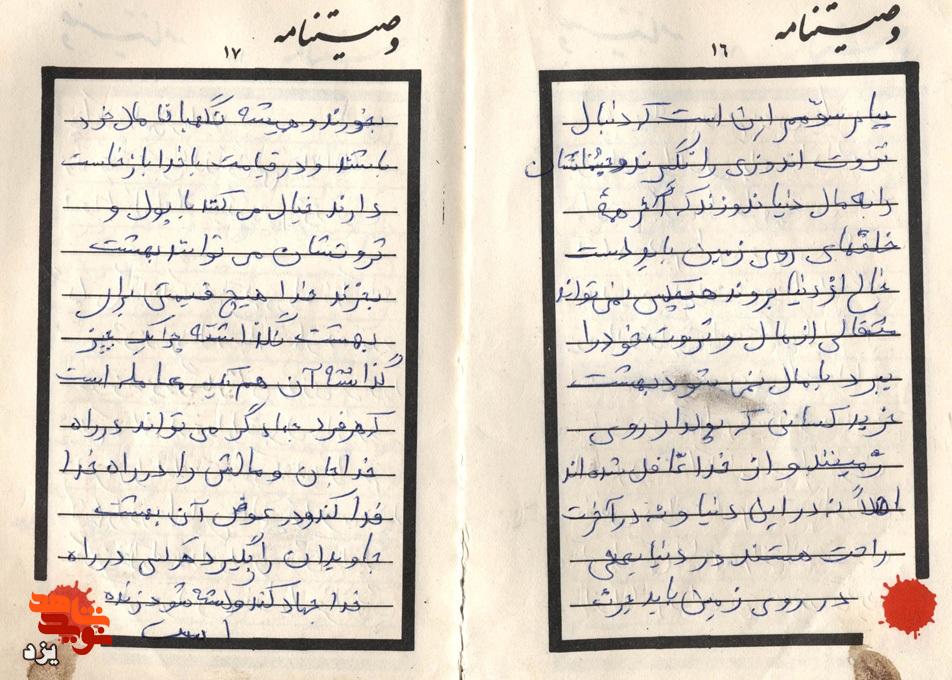 وصیتنامه
۱۶
پیام سوّمم این است که دنبال
ثروت اندوزی را نگیرند و چشماشان
را به مال دنیا ندوزند که اگر همهٔ
خلقهای روی زمین باید دست
خالی از دنیا بروند هیچکس نمی تواند
مثقالی از مال و ثروت خود را
ببرد با مال نمی شود بهشت
خرید کسانی که پولدار روی
زمینند و از خدا غافل شده اند
اصلاً نه در این دنیا و نه در آخرت
راحت هستند در دنیا یعنی
در روی زمین باید غصه
وصیتنامه
۱۷
بخورند و همیشه نگهبان مال خود
باشند و در قیامت با خدا بازخاست
دارند خیال می کنند با پول و
ثروتشان می توانند بهشت
بخرند خدا هیچ قیمتی برای
بهشت نگذاشته چرا یک چیز
گذاشته آن هم یک معامله است
که هر فرد جهادگر می تواند در راه
خدا جان و مالش را در راه خدا
فدا کند و در عوض آن بهشت
جاویدان را بگیرد هر کس در راه
خدا جهاد کند و کشته شود زنده
است
نوید شاهد
یزد